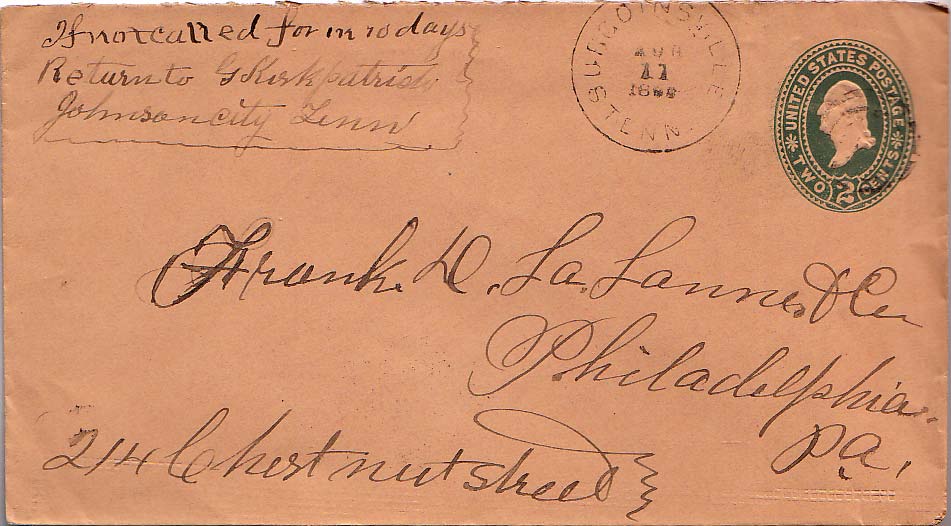 If not called for in 10 days
Return to G Kirkpatrick
Johnson city Tenn
SURGOINSVILLE
11
TENN.
UNITED STATES POSTAGE
TWO 2 CENTS
Frank. D. La. Lanne & Co
Philadelphia.
Pa.
214 Chestnut street